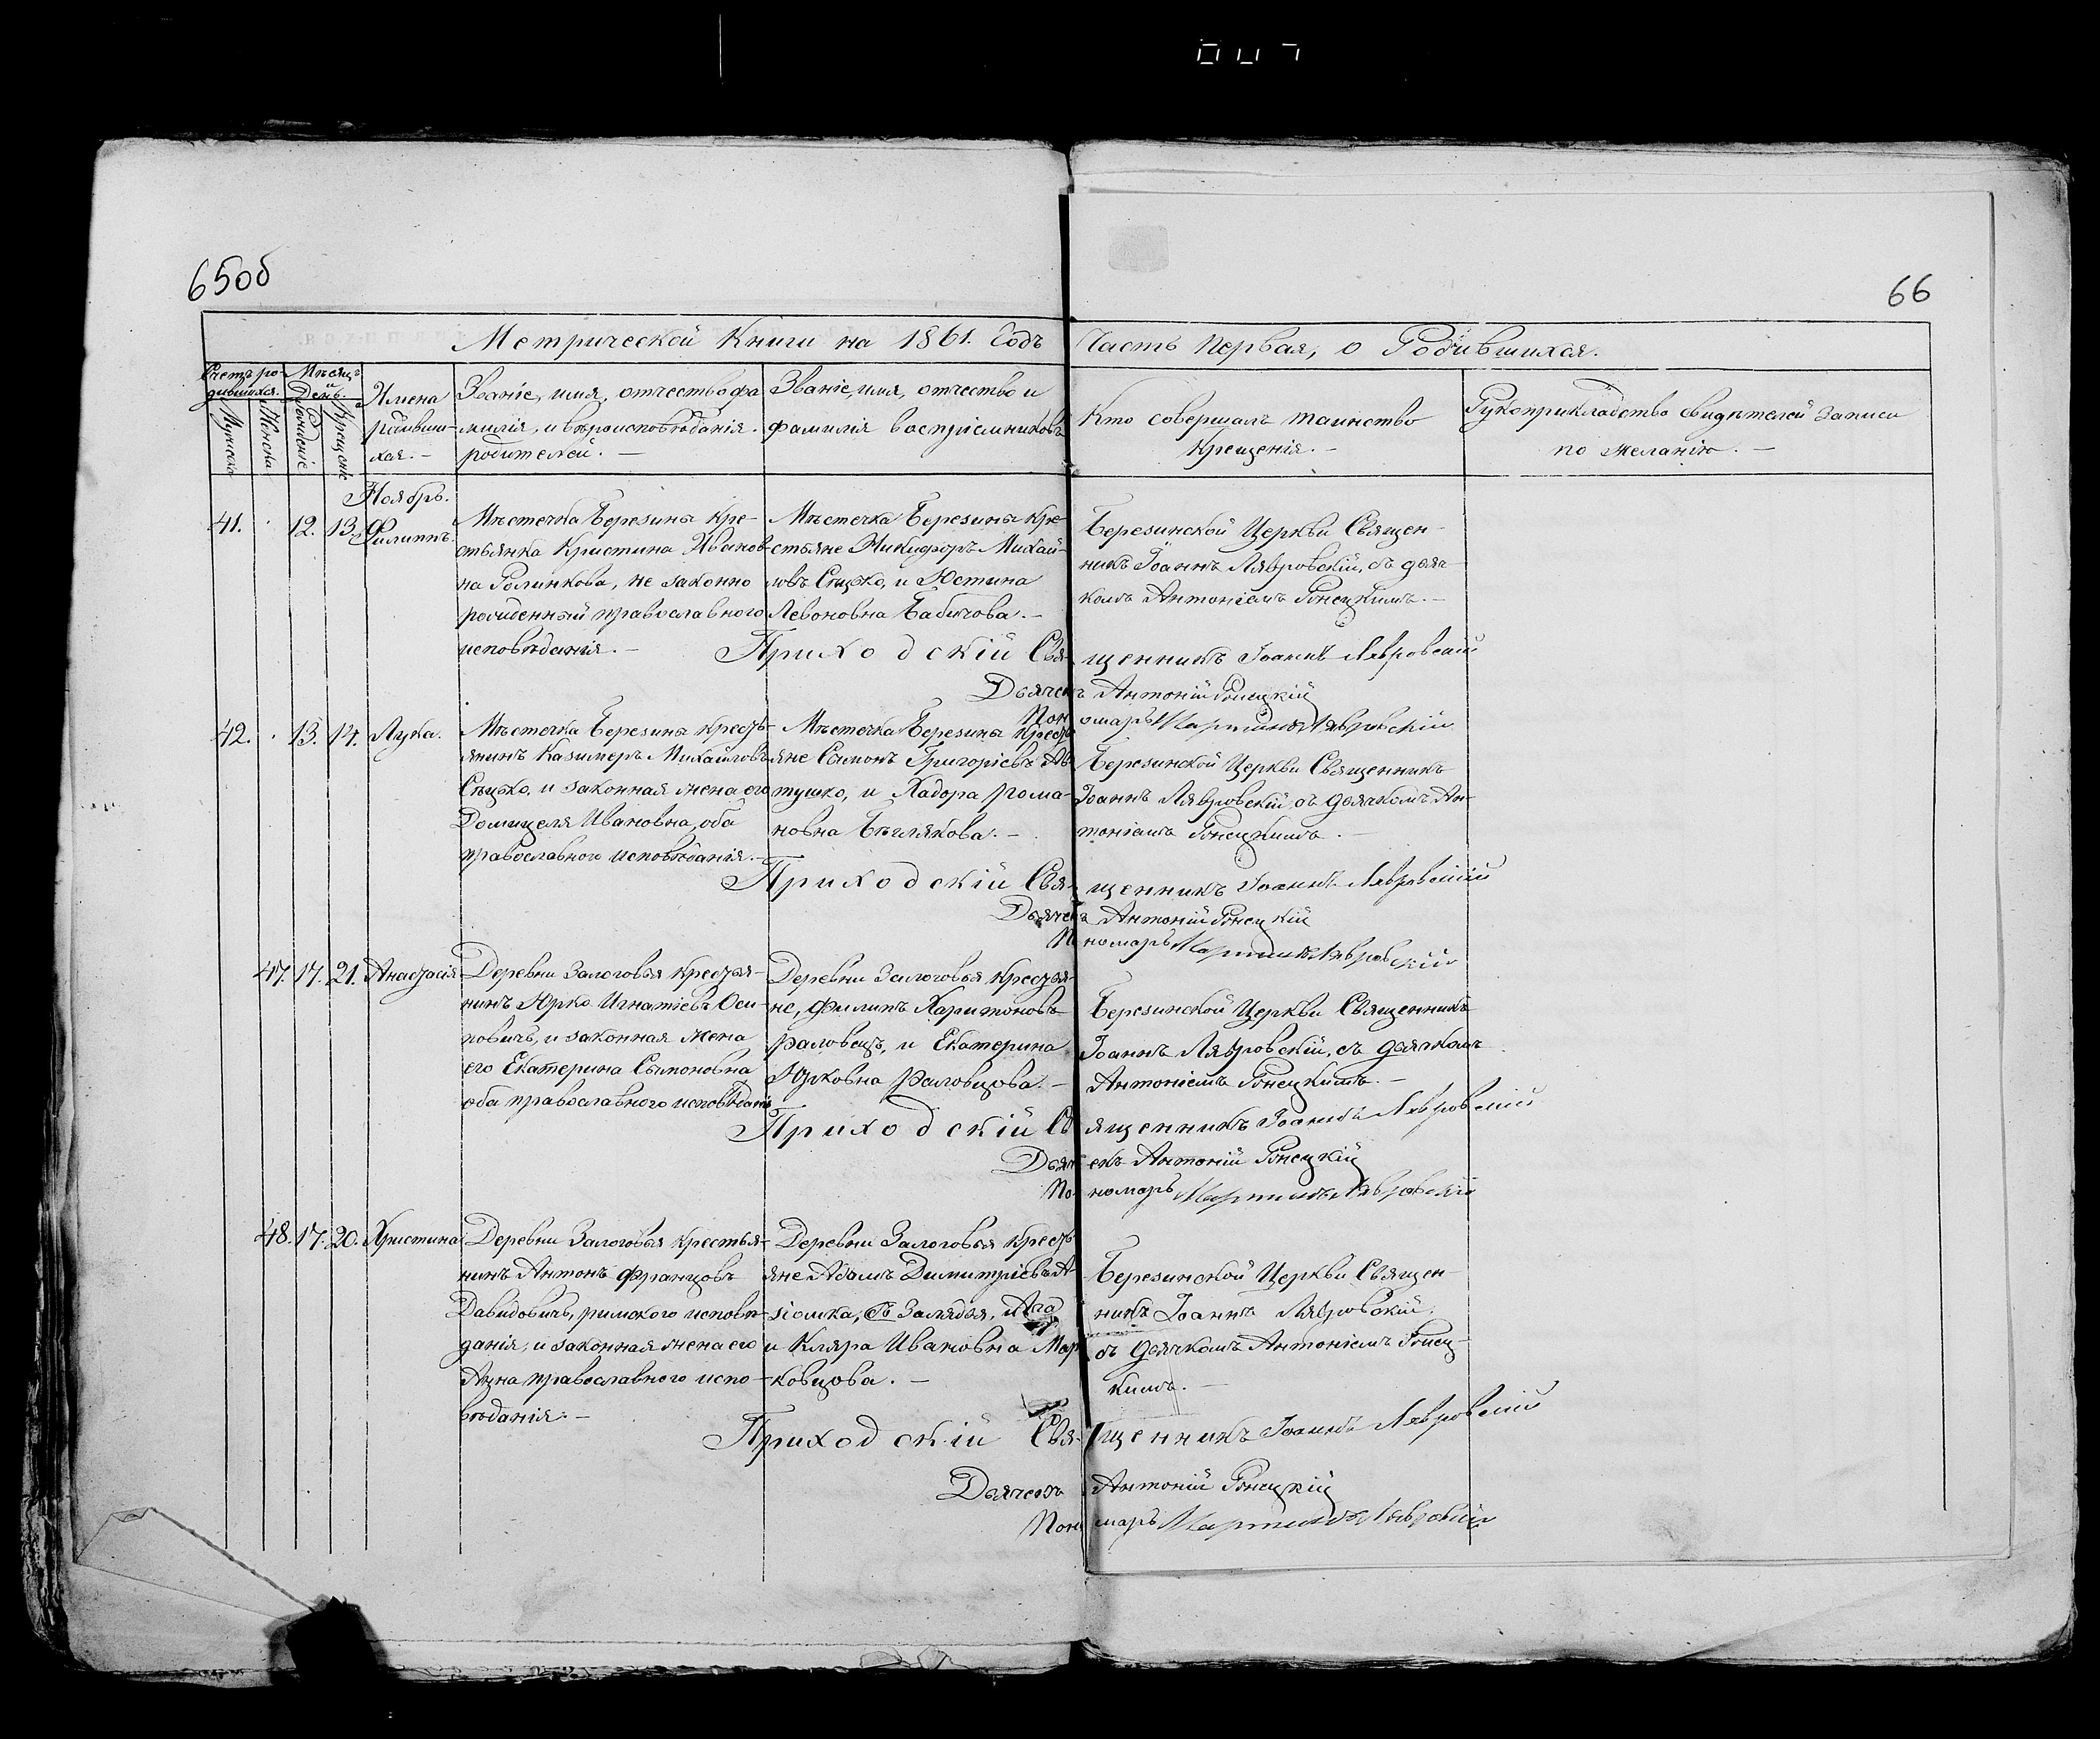 65об
66
Метрической Книги на 1861. Годъ Часть Первая, о Родившихся.
Счетъ ро-
дившихся.
Мужеска
Женска
Мѣсяцъ
и
День.
Рожденіе
Крещеніе
Имена
родивши-
хся. —
Званіе, имя, отчество фа
милія, и вѣроисповѣданія.
родителей. —
Званіе, имя, отчество и
фамилія воспріемниковъ
Кто совершалъ таинство
Крещенія. —
Рукоприкладство свидѣтелей записи
по желанію. —
Ноябрь.
41. 12. 13. Филиппъ.
Мѣстечка Березины кре-
стьянка Кристина Иванов-
на Голинкова, не законно
рожденный православного
исповѣданія. —
Мѣстечка Березины кре-
стьяне Никифоръ Михай-
ловъ Сѣцко, и Юстина
Левоновна Бабичова. —
Березинской Церкви Священ-
никъ Іоаннъ Лявровскій, съ дьяч-
комъ Антоніемъ Гонецкимъ. —
Приходскій Священникъ Іоаннъ Лявровскій
Дьячекъ Антоній Гонецкій
Пономарь Мартинъ Лявровскій
42. 13. 14. Лука.
Мѣстечка Березины кресть-
янинъ Казимеръ Михайловъ
Сѣцко, и законная жена его
Домицеля Ивановна, оба
православного исповѣданія. —
Мѣстечка Березины кресть
яне Сымонъ Григоріевъ Ав
тушко, и Хадора Рома-
новна Бѣглякова. —
Березинской Церкви Священникъ
Іоаннъ Лявровскій, съ дьячкомъ Ан-
тоніемъ Гонецкимъ. —
Приходскій Священникъ Іоаннъ Лявровскій
Дьячекъ Антоній Гонецкій
Пономарь Мартинъ Лявровскій
47. 17. 21. Анастасія
Деревни Залоговья крестья-
нинъ Юрко Игнатіевъ Оси-
повичъ, и законная жена
его Екатерина Сымоновна
оба православного исповѣданія
Деревни Залоговья крестья-
не, Филипъ Харитоновъ
Раловецъ, и Екатерина
Юрковна Раловцова. —
Березинской Церкви Священникъ
Іоаннъ Лявровскій, съ дьячкомъ
Антоніемъ Гонецкимъ. —
Приходскій Священникъ Іоаннъ Лявровскій
Дьячекъ Антоній Гонецкій
Пономарь Мартинъ Лявровскій
48. 17. 20. Христина
Деревни Залоговья крестья-
нинъ Антонъ Францовъ
Давидовичъ, римского исповѣ-
данія, и законная жена его
Анна православного испо-
вѣданія. —
Деревни Залоговья кресть
яне Адамъ Димитріевъ А-
зіомка, съ Залядья,
и Кляра Ивановна Мар
ковцова. —
Березинской Церкви Священ-
никъ Іоаннъ Лявровскій,
съ дьячкомъ Антоніемъ Гонец-
кимъ. —
Приходскій Священникъ Іоаннъ Лявровскій
Дьячекъ Антоній Гонецкій
Пономарь Мартинъ Лявровскій